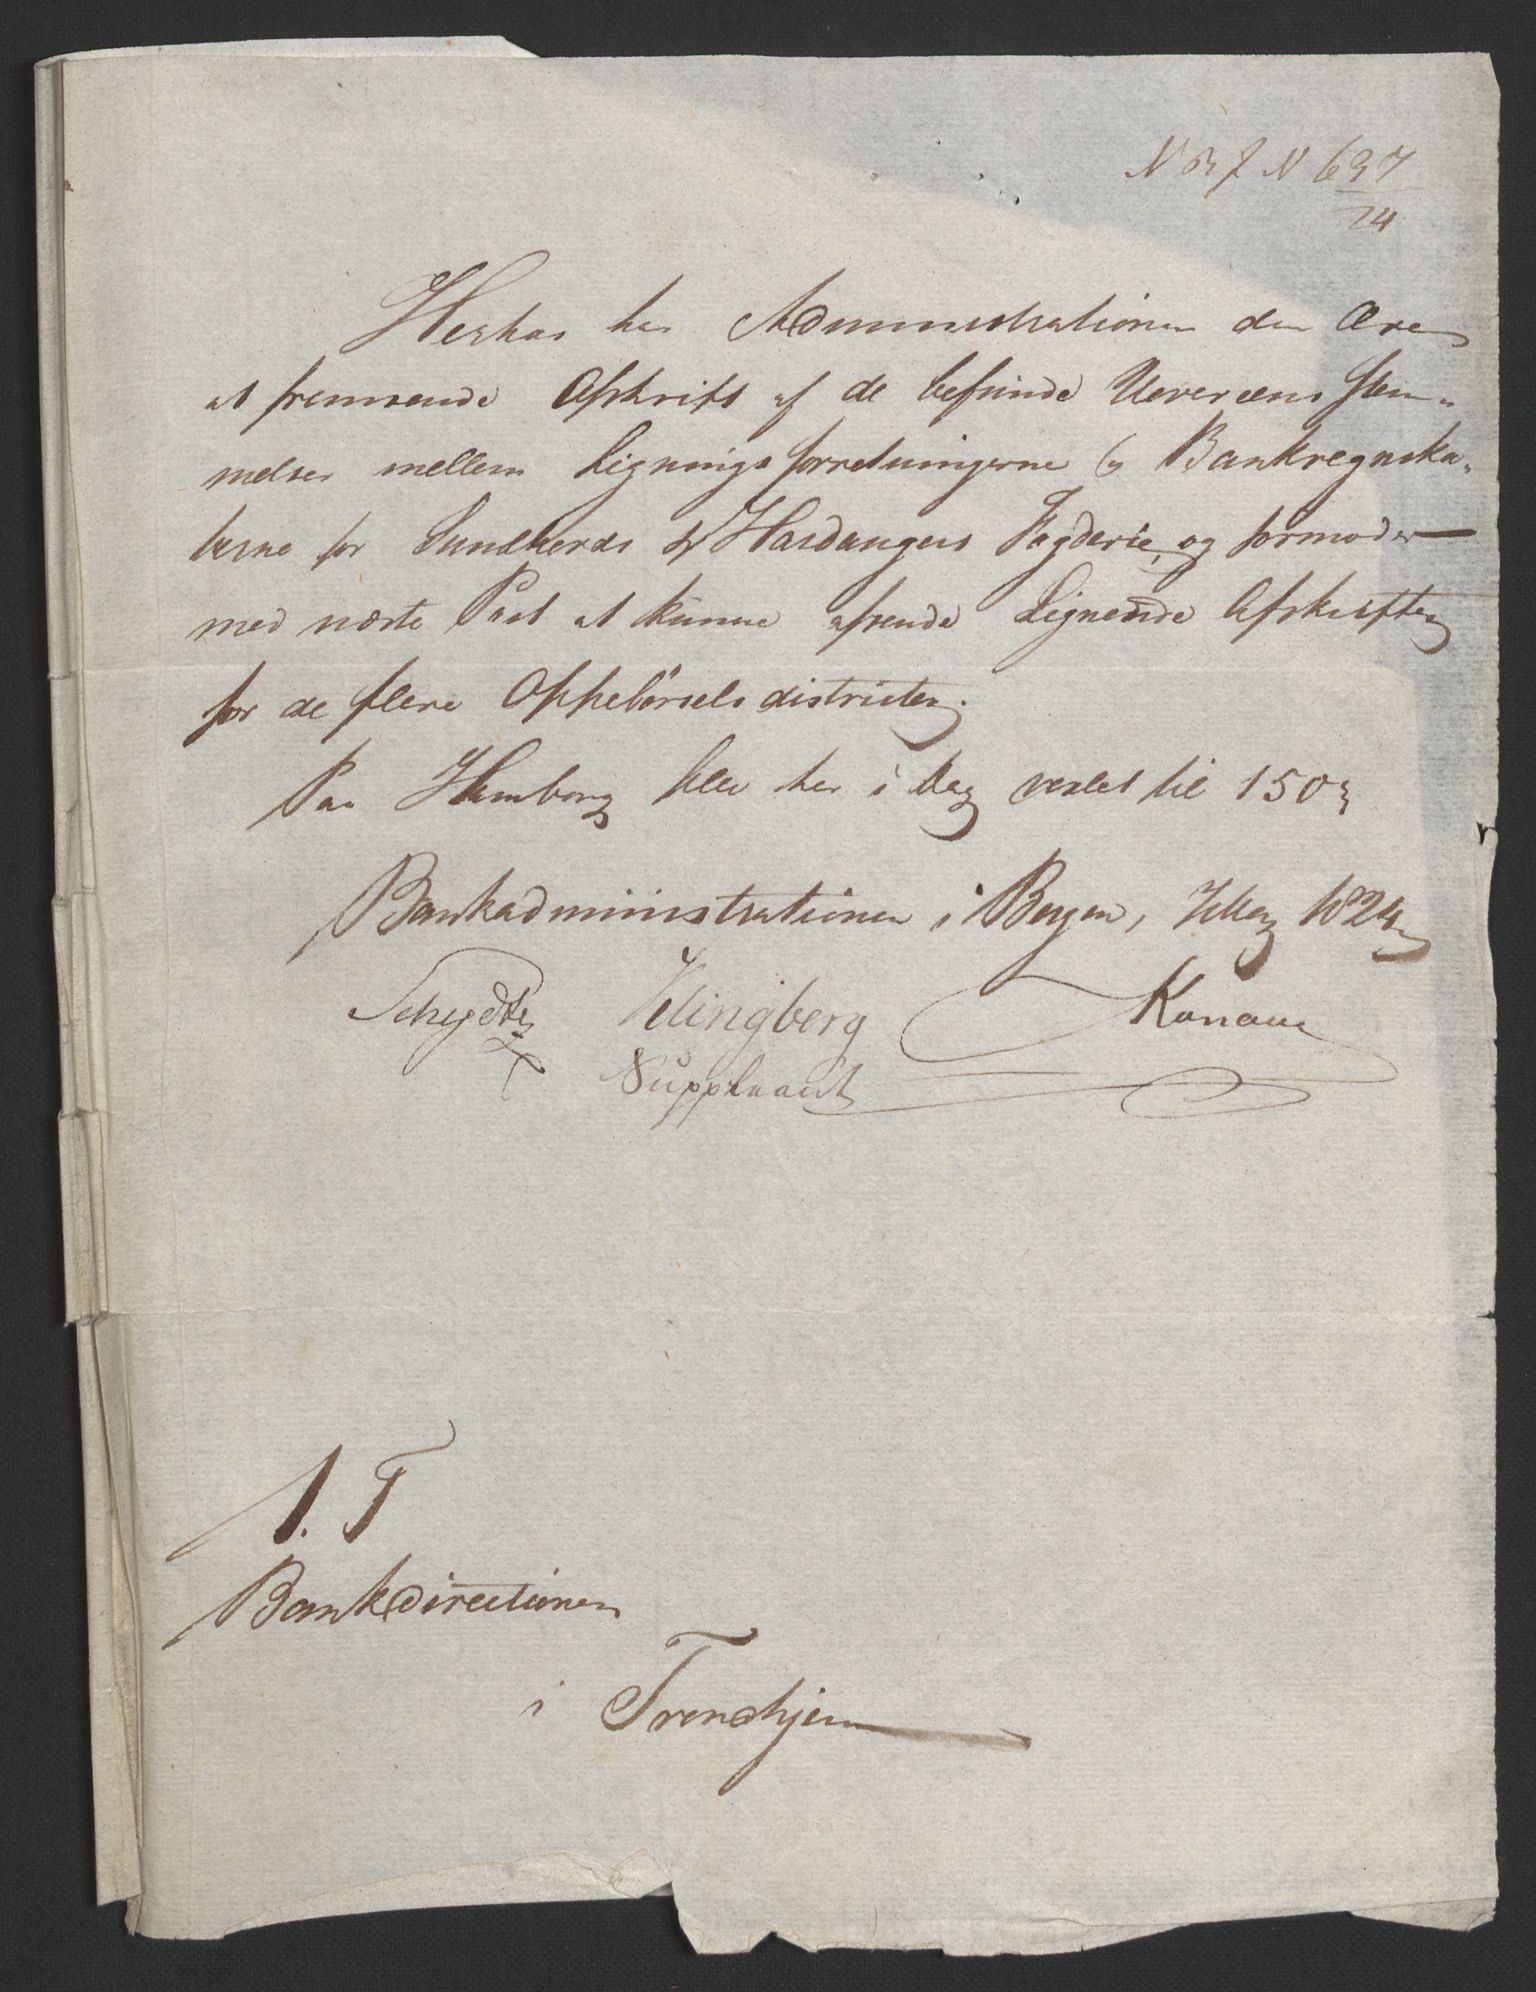 N B J N 637
74
Herhos har Administrationen den Ære
at fremsende Afskrift af de befundne Uovereensstem-
melser mellem Ligningsforretningerne og Bankregnska-
berne for Sundhords og Hardangers Fogderie, og formoder
med næste Post at kunne afsende Lignende Afskrifter
for de flere Oppebørselsdistricter.
Paa Hamborg blev her i Dag vexlet til 150
Bankadministrationen i Bergen, 7 May 1824
Scheydtz Klingberg Konow
Suppleant
S. T
Bankdirectionen
i Trondhjem